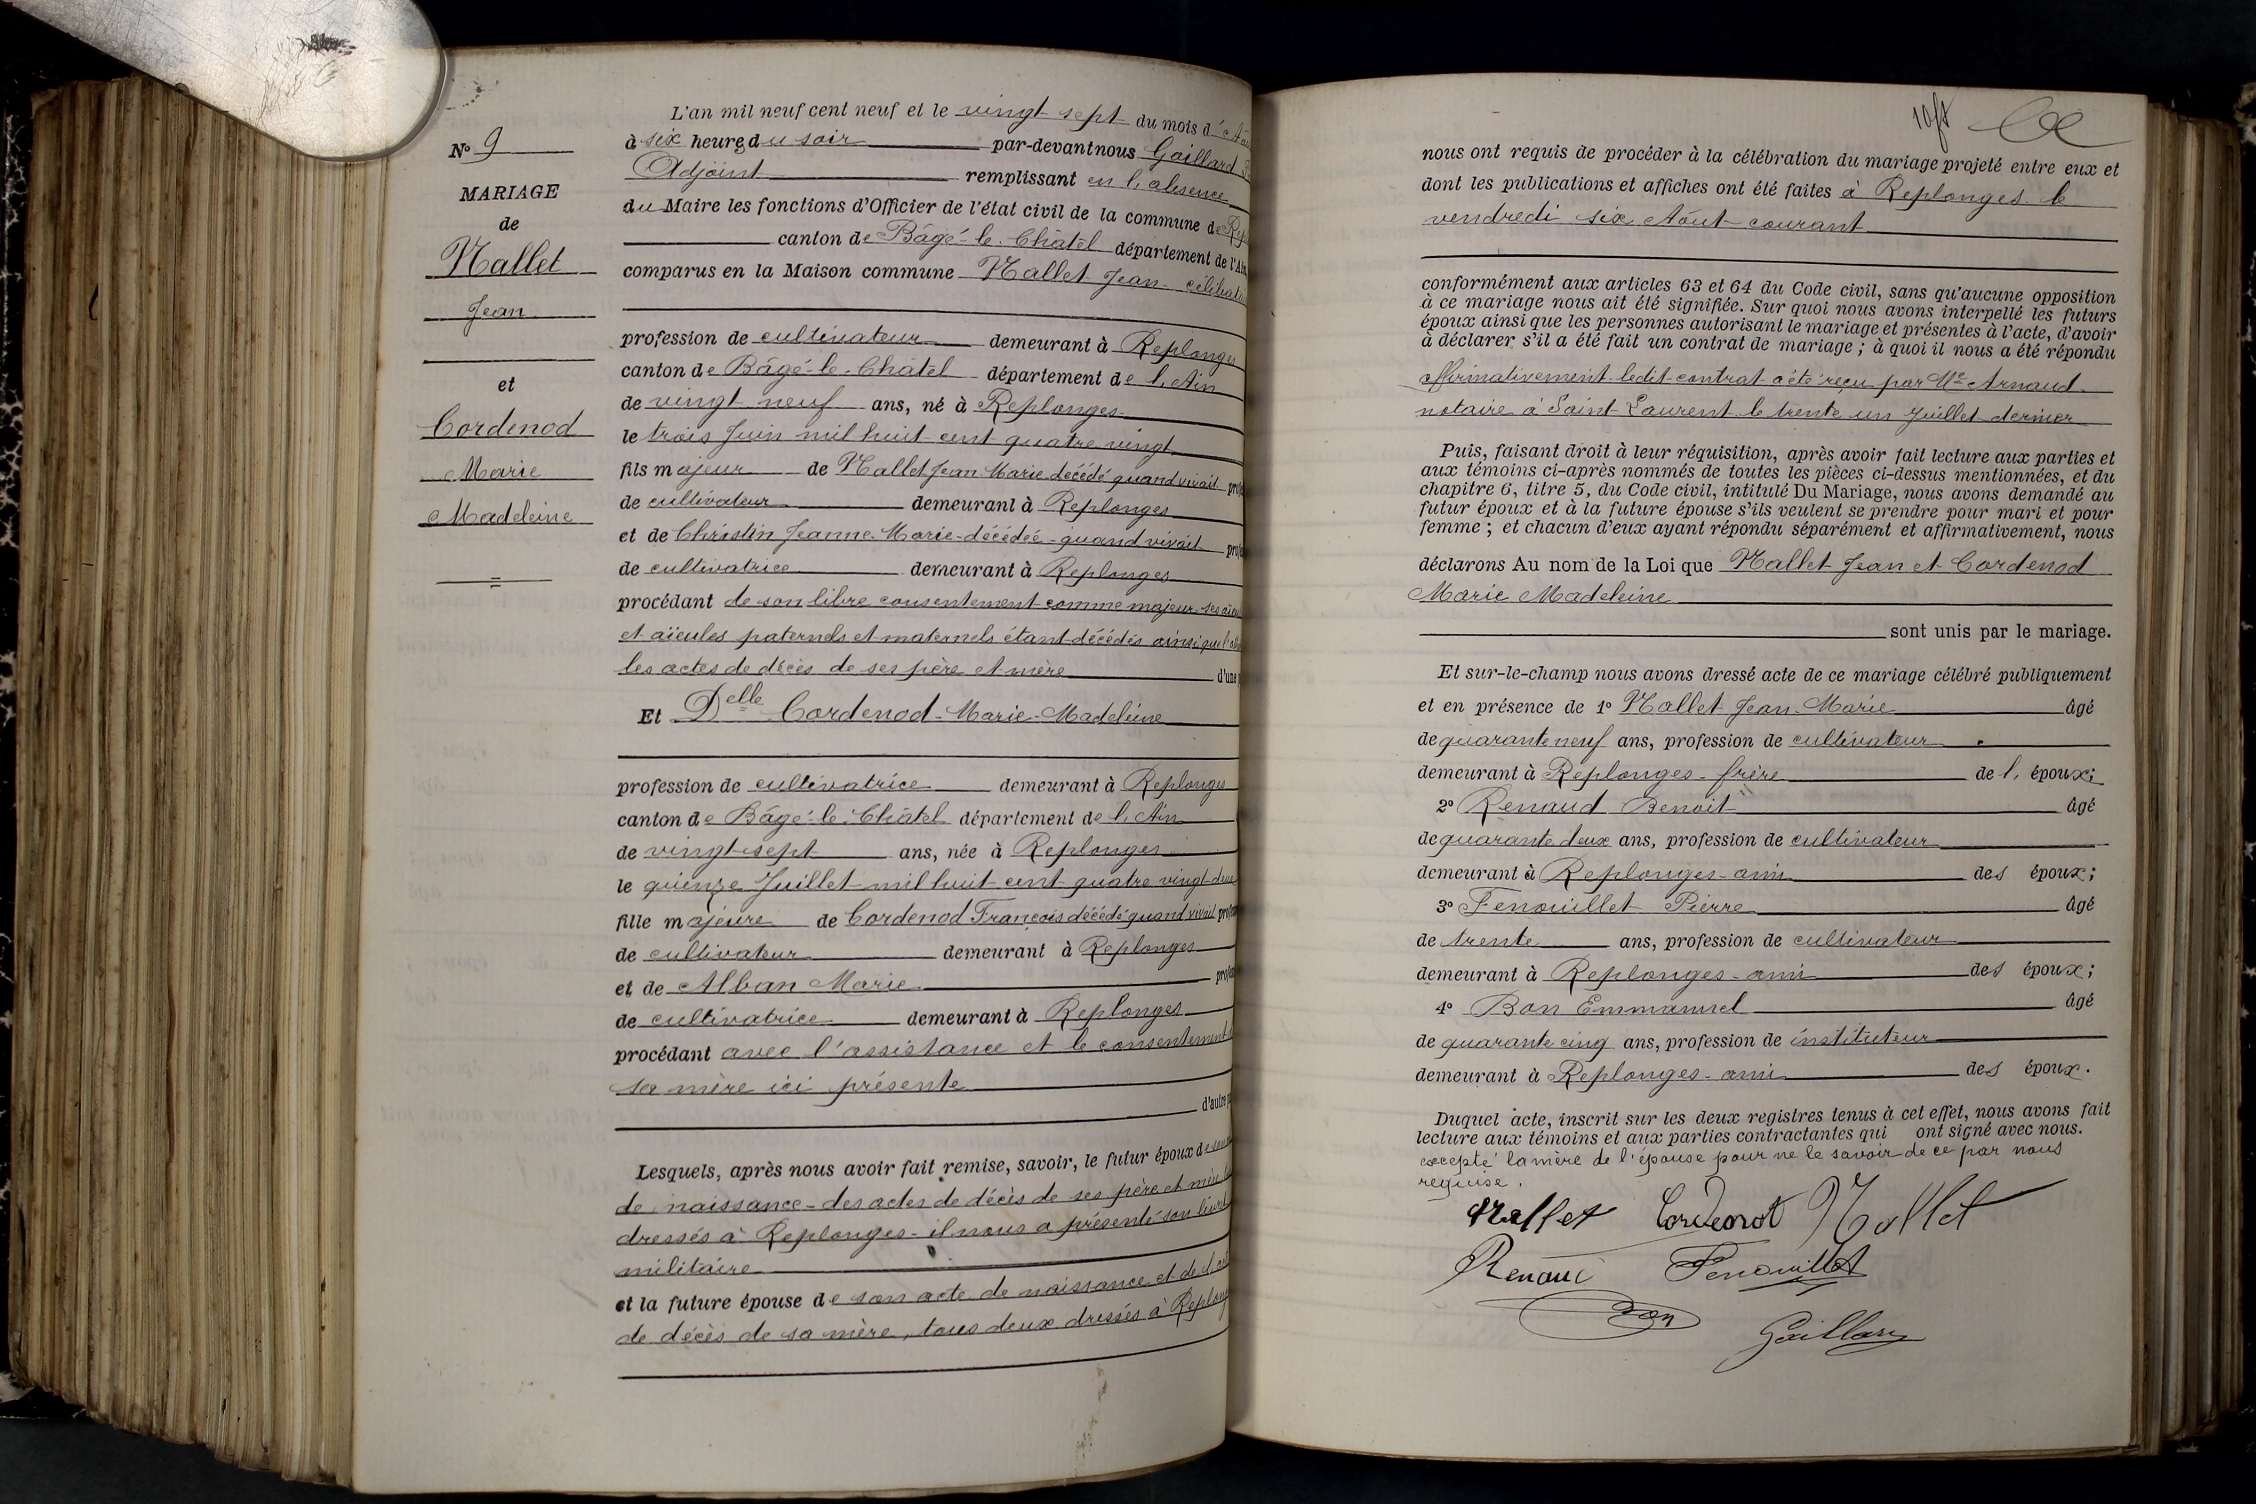 N° 9
MARIAGE
de
Mallet
Jean
et
Cordenod
Marie
Madeleine
L'an mil neuf cent neuf et le vingt sept du mois d'
à six heures du soir par-devant nous Gaillard
Adjoint remplissant en l'absence
du Maire les fonctions d'Officier de l'état civil de la commune de
canton de Bâgé-le-Châtel département de l'Ain,
comparus en la Maison commune Mallet Jean
profession de cultivateur demeurant à Replonges
canton de Bâgé-le-Châtel département de l'Ain
de vingt neuf ans, né à Replonges
le trois Juin mil huit cent quatre vingt
fils majeur de Mallet Jean Marie décédé quand vivait
de cultivateur demeurant à Replonges
et de Christin Jeanne-Marie-décédée-quand vivait
de cultivatrice demeurant à Replonges
procédant de son libre consentement comme majeur ses
et aïeules paternels et maternels étant décédés ainsi que
les actes de décès de ses père et mère d'une
Et Delle Cordenod-Marie-Madeleine
profession de cultivatrice demeurant à Replonges
canton de Bâgé-le-Châtel département de l'Ain
de vingt-sept ans, née à Replonges
le quinze Juillet mil huit cent quatre vingt-deux
fille majeure de Cordenod François décédé quand vivait
de cultivateur demeurant à Replonges
et de Alban Marie
de cultivatrice demeurant à Replonges
procédant avec l'assistance et le consentement
sa mère ici présente
d'autre
Lesquels, après nous avoir fait remise, savoir, le futur époux de
de naissance-des actes de décès de ses père et mère
dressés à Replonges-il nous a présenté son livret
militaire
et la future épouse de son acte de naissance et de
de décès de sa mère, tous deux dressés à
nous ont requis de procéder à la célébration du mariage projeté entre eux et
dont les publications et affiches ont été faites à Replonges le
vendredi six Août courant
conformément aux articles 63 et 64 du Code civil, sans qu'aucune opposition
à ce mariage nous ait été signifiée. Sur quoi nous avons interpellé les futurs
époux ainsi que les personnes autorisant le mariage et présentes à l'acte, d'avoir
à déclarer s'il a été fait un contrat de mariage ; à quoi il nous a été répondu
affirmativement ledit contrat a été reçu par Me Arnaud
notaire à Saint Laurent le trente un Juillet dernier
Puis, faisant droit à leur réquisition, après avoir fait lecture aux parties et
aux témoins ci-après nommés de toutes les pièces ci-dessus mentionnées, et du
chapitre 6, titre 5, du Code civil, intitulé Du Mariage, nous avons demandé au
futur époux et à la future épouse s'ils veulent se prendre pour mari et pour
femme ; et chacun d'eux ayant répondu séparément et affirmativement, nous
déclarons Au nom de la Loi que Mallet Jean et Cordenod
Marie Madeleine
sont unis par le mariage.
Et sur-le-champ nous avons dressé acte de ce mariage célébré publiquement
et en présence de 1° Mallet Jean-Marie âgé
de quarante neuf ans, profession de cultivateur
demeurant à Replonges-frère de l' époux;
2° Renaud Benoit âgé
de quarante deux ans, profession de cultivateur
demeurant à Replonges-ami des époux;
3° Fenouillet Pierre âgé
de trente ans, profession de cultivateur
demeurant à Replonges-ami des époux;
4° Bon Emmanuel âgé
de quarante cinq ans, profession de instituteur
demeurant à Replonges-ami des époux.
Duquel acte, inscrit sur les deux registres tenus à cet effet, nous avons fait
lecture aux témoins et aux parties contractantes qui ont signé avec nous.
excepté la mère de l'épouse pour ne le savoir de ce par nous
requise.
Mallet Cordenod Mallet
Renaud Fenouillet
Bon
Gaillard